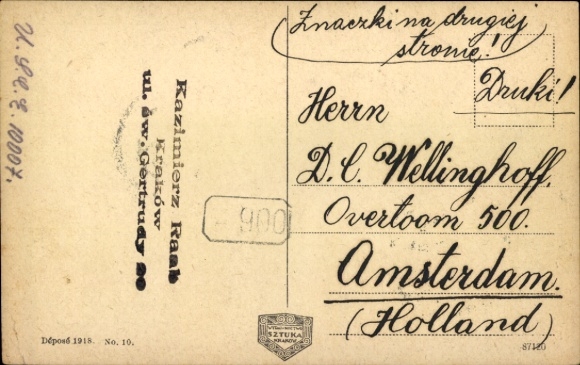 Znaczki na drugiej
stronie!
Druki!
Herrn
D. C. Wellinghoff.
Overtoom 500.
Amsterdam.
(Holland)
Kazimierz Raab
Kraków
ul. św. Gertrudy
900
Déposé 1918. No. 10.
WYDAWNICTWO
SZTUKA
KRAKÓW
87120